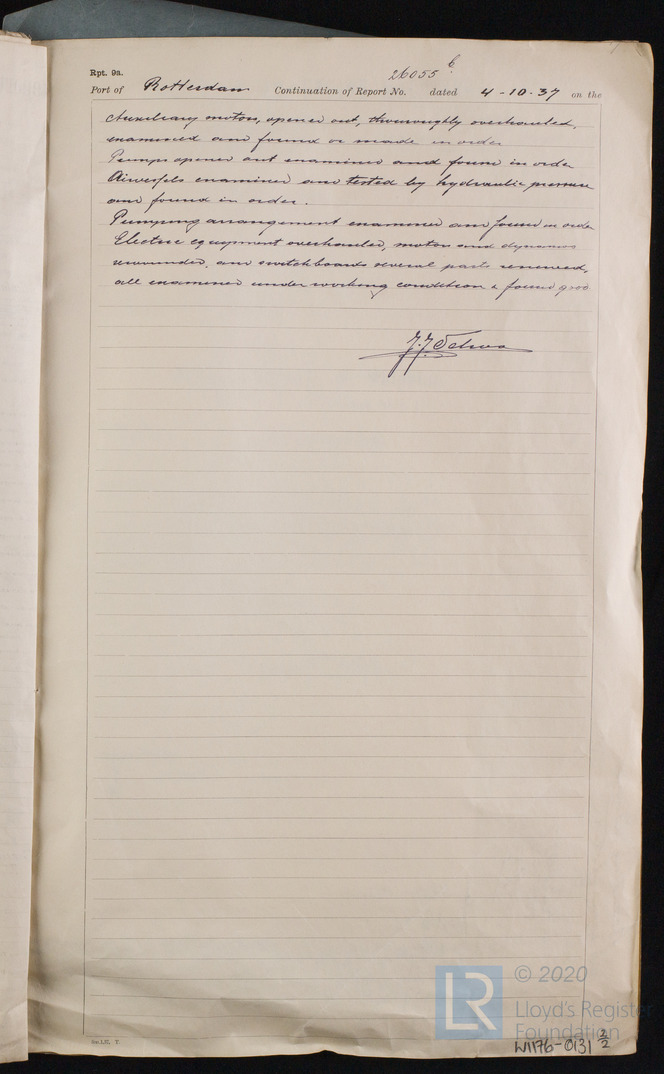 26055 b.
Rpt. 9a.
Port of Rotterdam Continuation of Report No. dated 4-10-37 on the
Auxiliary motors, opened out, thouroughly overhauled,
examined and found or made in order
Pumps opened out examined and found in order
Airvessels examined and tested by hydraulic pressure
and found in order.
Pumping arrangement examined and found in order
Electric equipment overhauled, motors and dynamos
rewounded, and switchboards several parts renewed,
all examined under working condition & found good
© 2020
Lloyd's Register
Foundation
LR
W1176-0131 2/2